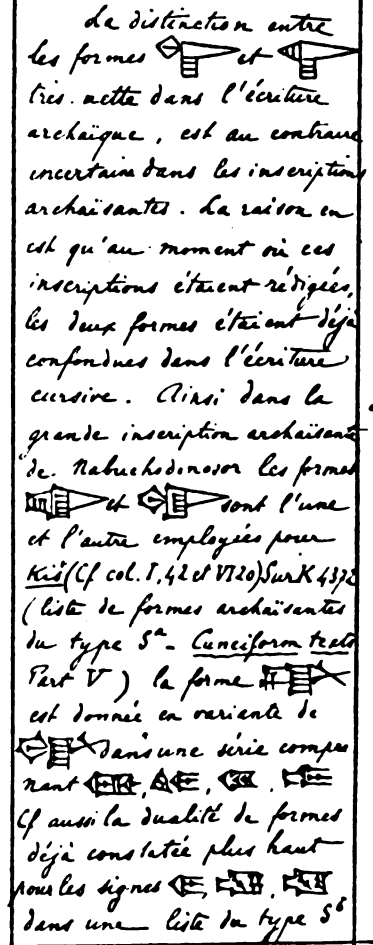 La distinction entre
les formes et
très nette dans l'écriture
archaïque, est au contraire
incertaine dans les inscriptions
archaïsantes. La raison en
est qu'au moment où ces
inscriptions étaient rédigées,
les deux formes étaient déjà
confondues dans l'écriture
cursive. Ainsi dans la
grande inscription archaïsante
de Nabuchodonosor les formes
et sont l'une
et l'autre employées pour
Kiš (Cf col. I, 42 et VI 20) Sur K 4372
(liste de formes archaïsantes
du type Sᵃ - Cuneiform texts
Part V) la forme
est donnée en variante de
dans une série compre
nant , , , .
Cf aussi la dualité de formes
déjà constatée plus haut
pour les signes , ,
dans une liste du type Sᵇ